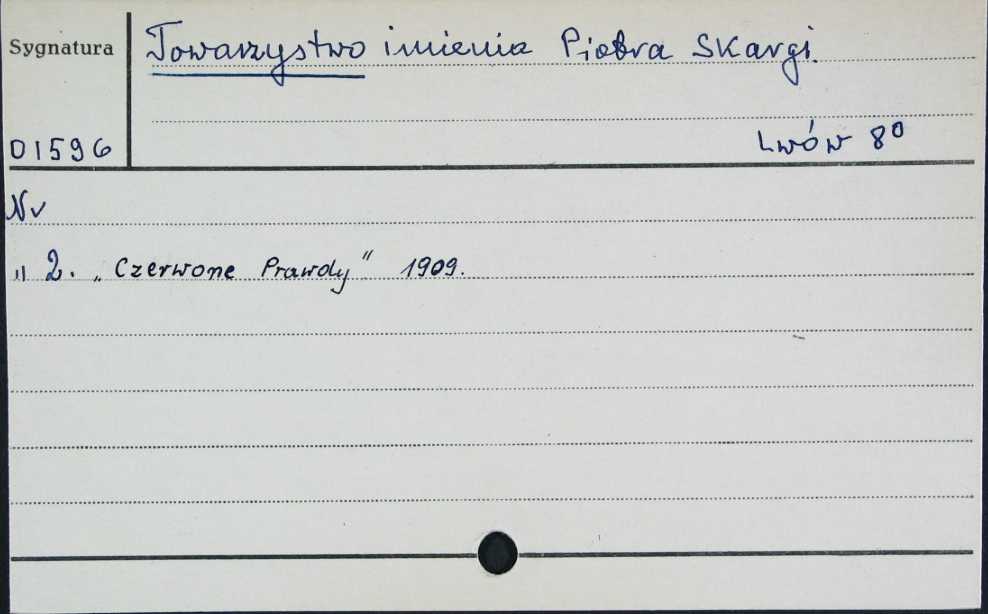 Sygnatura
Towarzystwo imienia Piotra Skargi.
01596
Lwów 8⁰
Nr
" 2. „Czerwone Prawdy" 1909.